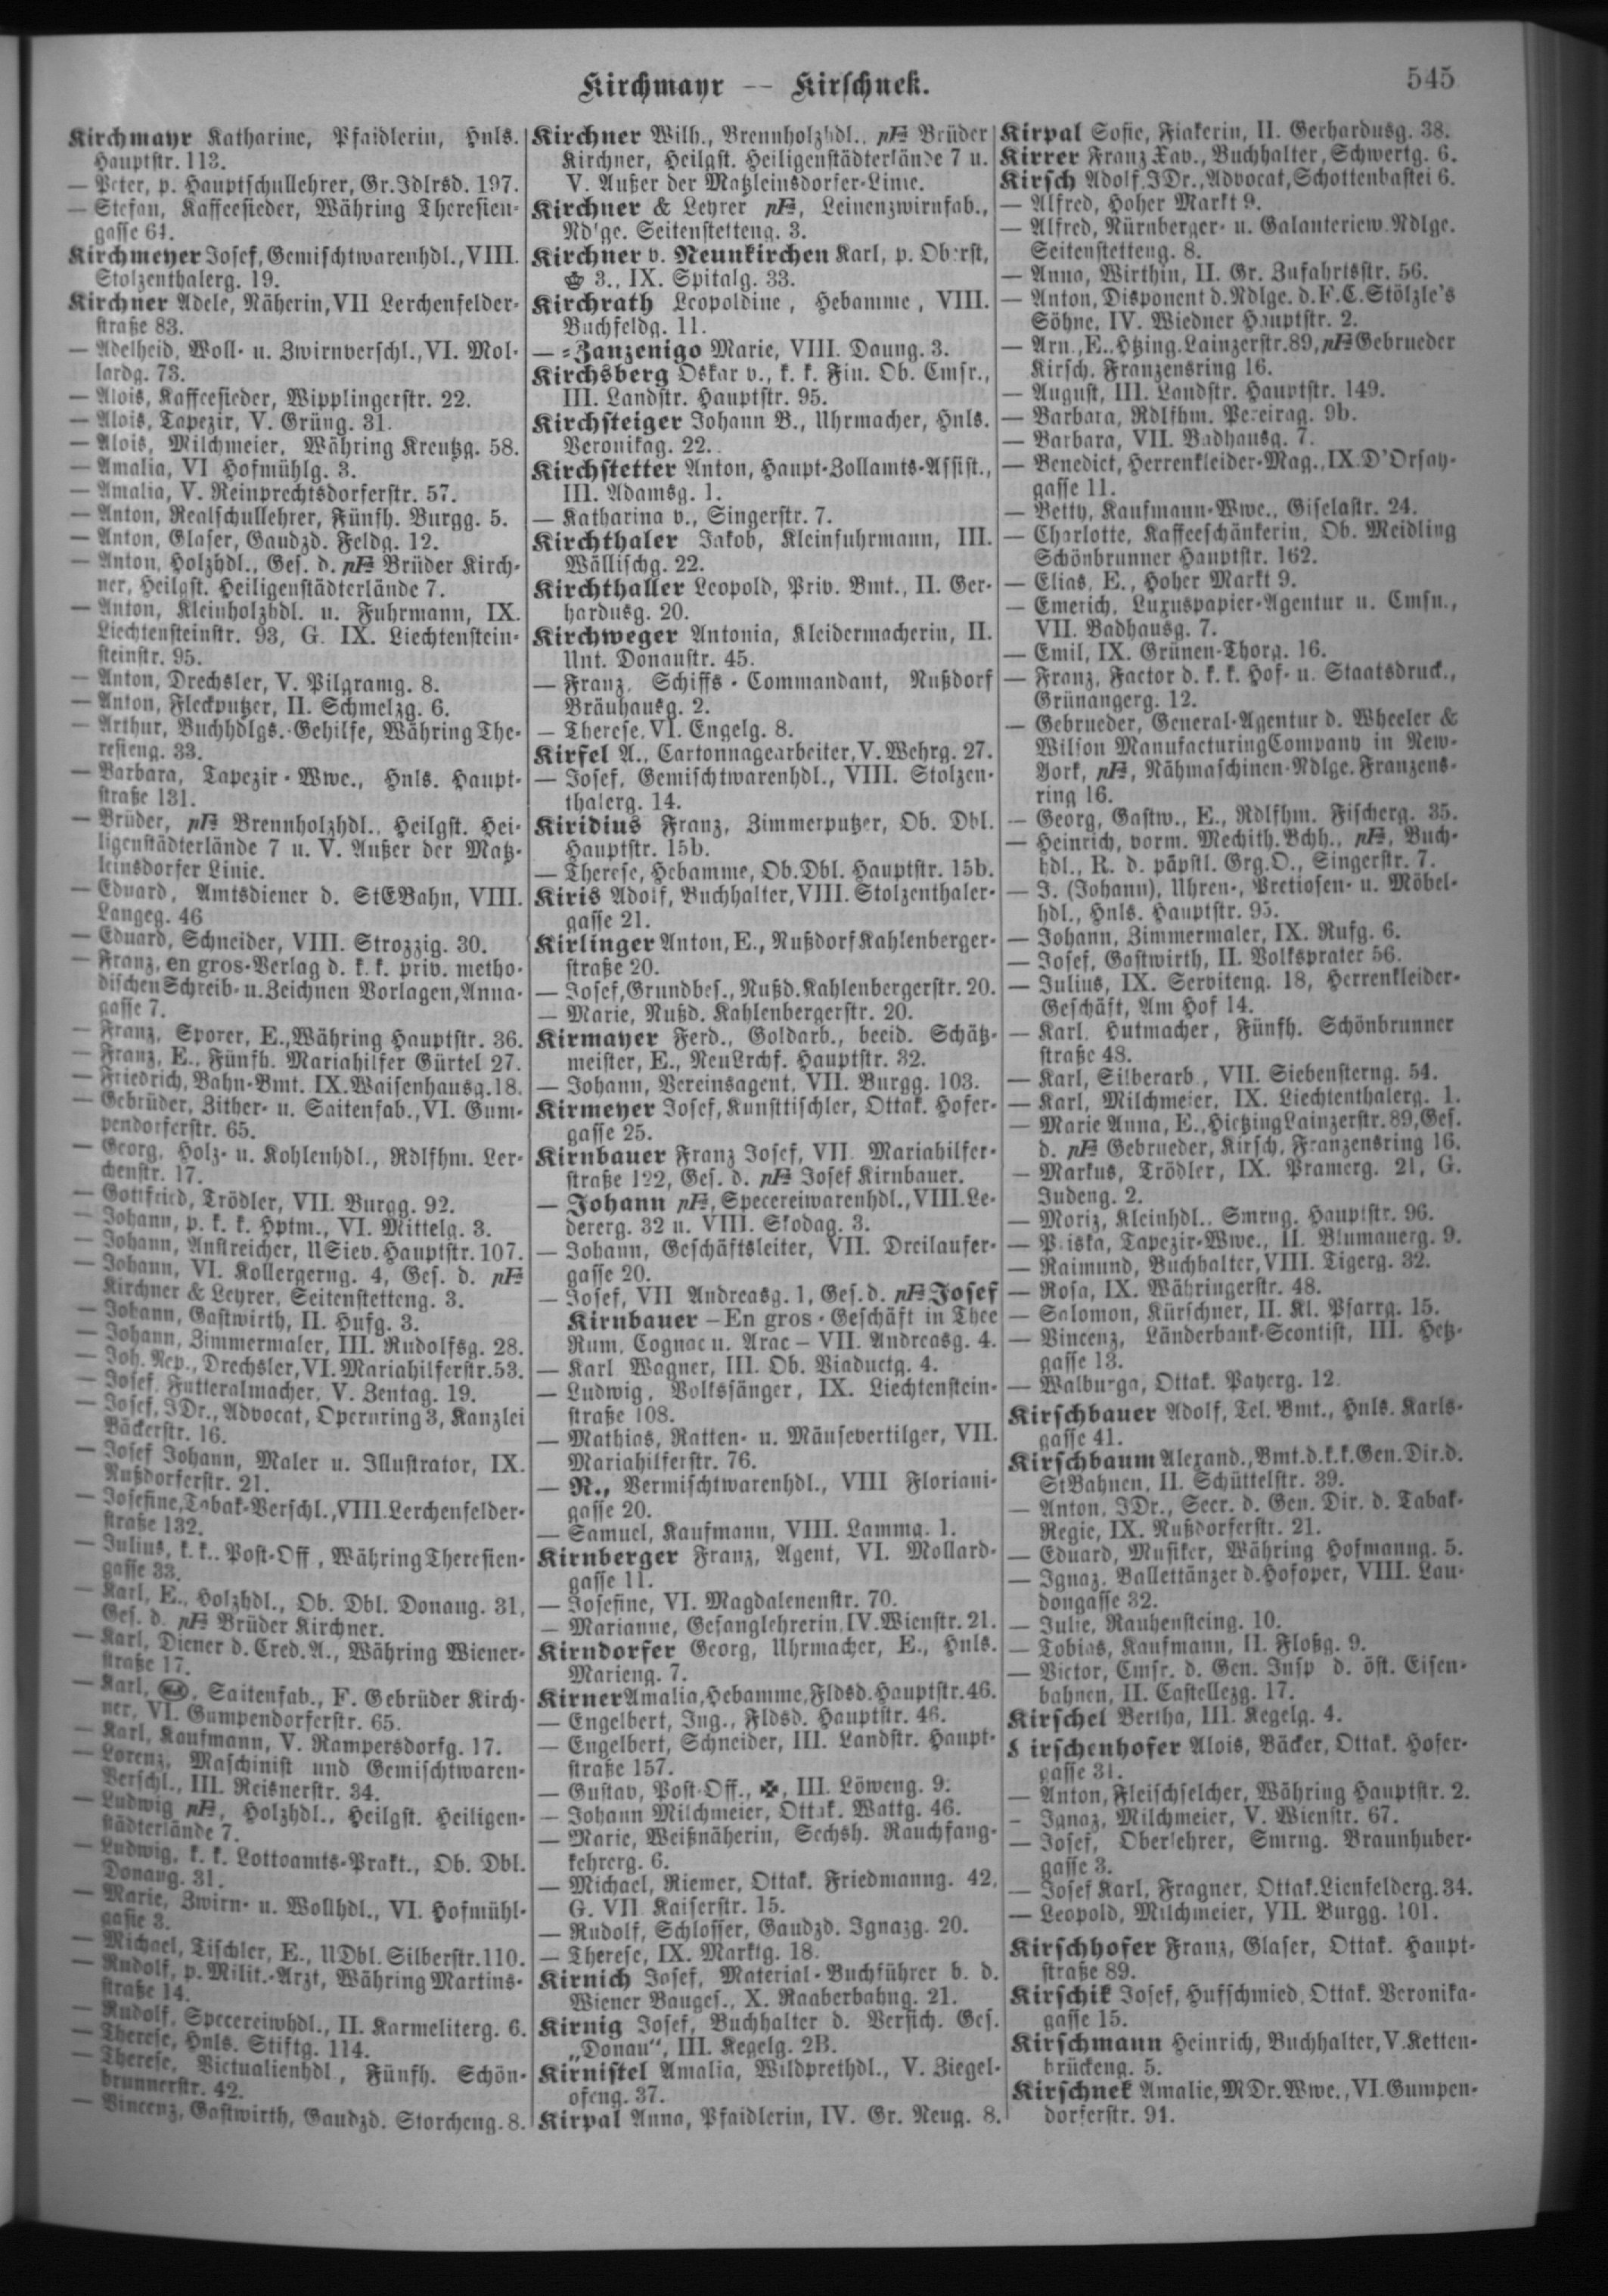 Kirchmayr — Kirschnek.
545
Kirchmayr Katharine, Pfaidlerin, Hnls.
Hauptstr. 113.
— Peter, p. Hauptschullehrer, Gr. Jdlrsd. 197.
— Stefan, Kaffeesieder, Währing Theresien-
gasse 64.
Kirchmeyer Josef, Gemischtwarenhdl., VIII.
Stolzenthalerg. 19.
Kirchner Adele, Näherin, VII Lerchenfelder-
straße 83.
— Adelheid, Woll- u. Zwirnverschl., VI. Mol-
lardg. 73.
— Alois, Kaffeesieder, Wipplingerstr. 22.
— Alois, Tapezir, V. Grüng. 31.
— Alois, Milchmeier, Währing Kreutzg. 58.
— Amalia, VI Hofmühlg. 3.
— Amalia, V. Reinprechtsdorferstr. 57.
— Anton, Realschullehrer, Fünfh. Burgg. 5.
— Anton, Glaser, Gaudzd. Feldg. 12.
— Anton, Holzhdl., Ges. d. pF Brüder Kirch-
ner, Heilgst. Heiligenstädterlände 7.
— Anton, Kleinholzhdl. u. Fuhrmann, IX.
Liechtensteinstr. 93, G. IX. Liechtenstein-
steinstr. 95.
— Anton, Drechsler, V. Pilgramg. 8.
— Anton, Fleckputzer, II. Schmelzg. 6.
— Arthur, Buchhdlgs.-Gehilfe, Währing The-
resieng. 33.
— Barbara, Tapezir-Wwe., Hnls. Haupt-
straße 131.
— Brüder, pF Brennholzhdl., Heilgst. Hei-
ligenstädterlände 7 u. V. Außer der Matz-
leinsdorfer Linie.
— Eduard, Amtsdiener d. StEBahn, VIII.
Langeg. 46
— Eduard, Schneider, VIII. Strozzig. 30.
— Franz, en gros-Verlag d. k. k. priv. metho-
dischen Schreib- u. Zeichnen Vorlagen, Anna-
gasse 7.
— Franz, Sporer, E., Währing Hauptstr. 36.
— Franz, E., Fünfh. Mariahilfer Gürtel 27.
— Friedrich, Bahn-Bmt. IX. Waisenhausg. 18.
— Gebrüder, Zither- u. Saitenfab., VI. Gum-
pendorferstr. 65.
— Georg, Holz- u. Kohlenhdl., Rdlfhm. Ler-
chenstr. 17.
— Gottfried, Trödler, VII. Burgg. 92.
— Johann, p. k. k. Hptm., VI. Mittelg. 3.
— Johann, Anstreicher, USiev. Hauptstr. 107.
— Johann, VI. Kollergerng. 4, Ges. d. pF
Kirchner & Leyrer, Seitenstetteng. 3.
— Johann, Gastwirth, II. Hufg. 3.
— Johann, Zimmermaler, III. Rudolfsg. 28.
— Joh. Nep., Drechsler, VI. Mariahilferstr. 53.
— Josef, Futteralmacher, V. Zentag. 19.
— Josef, JDr., Advocat, Opernring 3, Kanzlei
Bäckerstr. 16.
— Josef Johann, Maler u. Illustrator, IX.
Nußdorferstr. 21.
— Josefine, Tabak-Verschl., VIII. Lerchenfelder-
straße 132.
— Julius, k. k. Post-Off, Währing Theresien-
gasse 33.
— Karl, E., Holzhdl., Ob. Dbl. Donaug. 31,
Ges. d. pF Brüder Kirchner.
— Karl, Diener d. Cred. A., Währing Wiener-
straße 17.
— Karl, Saitenfab., F. Gebrüder Kirch-
ner, VI. Gumpendorferstr. 65.
— Karl, Kaufmann, V. Rampersdorfg. 17.
— Lorenz, Maschinist und Gemischtwaren-
Verschl., III. Reisnerstr. 34.
— Ludwig pF, Holzhdl., Heilgst. Heiligen-
städterlände 7.
— Ludwig, k. k. Lottoamts-Prakt., Ob. Dbl.
Donaug. 31.
— Marie, Zwirn- u. Wollhdl., VI. Hofmühl-
gasse 3.
— Michael, Tischler, E., UDbl. Silberstr. 110.
— Rudolf, p. Milit.-Arzt, Währing Martins-
straße 14.
— Rudolf, Specereiwhdl., II. Karmeliterg. 6.
— Therese, Hnls. Stiftg. 114.
— Therese, Victualienhdl, Fünfh. Schön-
brunnerstr. 42.
— Vincenz, Gastwirth, Gaudzd. Storcheng. 8.
Kirchner Wilh., Brennholzhdl., pF Brüder
Kirchner, Heilgst. Heiligenstädterlände 7 u.
V. Außer der Matzleinsdorfer-Linie.
Kirchner & Leyrer pF, Leinenzwirnfab.,
Ndlge. Seitenstetteng. 3.
Kirchner v. Neunkirchen Karl, p. Oberst,
3., IX. Spitalg. 33.
Kirchrath Leopoldine, Hebamme, VIII.
Buchfeldg. 11.
— -Zanzenigo Marie, VIII. Daung. 3.
Kirchsberg Oskar v., k. k. Fin. Ob. Cmsr.,
III. Landstr. Hauptstr. 95.
Kirchsteiger Johann B., Uhrmacher, Hnls.
Veronikag. 22.
Kirchstetter Anton, Haupt-Zollamts-Assist.,
III. Adamsg. 1.
— Katharina v., Singerstr. 7.
Kirchthaler Jakob, Kleinfuhrmann, III.
Wällischg. 22.
Kirchthaller Leopold, Priv. Bmt., II. Ger-
hardusg. 20.
Kirchweger Antonia, Kleidermacherin, II.
Unt. Donaustr. 45.
— Franz, Schiffs-Commandant, Nußdorf
Bräuhausg. 2.
— Therese, VI. Engelg. 8.
Kirfel A., Cartonnagearbeiter, V. Wehrg. 27.
— Josef, Gemischtwarenhdl., VIII. Stolzen-
thalerg. 14.
Kiridius Franz, Zimmerputzer, Ob. Dbl.
Hauptstr. 15b.
— Therese, Hebamme, Ob. Dbl. Hauptstr. 15b.
Kiris Adolf, Buchhalter, VIII. Stolzenthaler-
gasse 21.
Kirlinger Anton, E., Nußdorf Kahlenberger-
straße 20.
— Josef, Grundbes., Nußd. Kahlenbergerstr. 20.
— Marie, Nußd. Kahlenbergerstr. 20.
Kirmayer Ferd., Goldarb., beeid. Schätz-
meister, E., NeuLrchf. Hauptstr. 32.
— Johann, Vereinsagent, VII. Burgg. 103.
Kirmeyer Josef, Kunsttischler, Ottak. Hofer-
gasse 25.
Kirnbauer Franz Josef, VII. Mariahilfer-
straße 122, Ges. d. pF Josef Kirnbauer.
— Johann pF, Specereiwarenhdl., VIII. Le-
dererg. 32 u. VIII. Skodag. 3.
— Johann, Geschäftsleiter, VII. Dreilaufer-
gasse 20.
— Josef, VII Andreasg. 1, Ges. d. pF Josef
Kirnbauer — En gros-Geschäft in Thee
Rum, Cognac u. Arac — VII. Andreasg. 4.
— Karl Wagner, III. Ob. Viaductg. 4.
— Ludwig, Volkssänger, IX. Liechtenstein-
straße 108.
— Mathias, Ratten- u. Mäusevertilger, VII.
Mariahilferstr. 76.
— R., Vermischtwarenhdl., VIII Floriani-
gasse 20.
— Samuel, Kaufmann, VIII. Lammg. 1.
Kirnberger Franz, Agent, VI. Mollard-
gasse 11.
— Josefine, VI. Magdalenenstr. 70.
— Marianne, Gesanglehrerin, IV. Wienstr. 21.
Kirndorfer Georg, Uhrmacher, E., Hnls.
Marieng. 7.
Kirner Amalia, Hebamme, Fldsd. Hauptstr. 46.
— Engelbert, Ing., Fldsd. Hauptstr. 46.
— Engelbert, Schneider, III. Landstr. Haupt-
straße 157.
— Gustav, Post-Off., ✠, III. Löweng. 9.
— Johann Milchmeier, Ottak. Wattg. 46.
— Marie, Weißnäherin, Sechsh. Rauchfang-
kehrerg. 6.
— Michael, Riemer, Ottak. Friedmanng. 42,
G. VII Kaiserstr. 15.
— Rudolf, Schlosser, Gaudzd. Ignazg. 20.
— Therese, IX. Marktg. 18.
Kirnich Josef, Material-Buchführer b. d.
Wiener Bauges., X. Raaberbahng. 21.
Kirnig Josef, Buchhalter d. Versich. Ges.
„Donau“, III. Kegelg. 2B.
Kirnistel Amalia, Wildprethdl., V. Ziegel-
ofeng. 37.
Kirpal Anna, Pfaidlerin, IV. Gr. Neug. 8.
Kirpal Sofie, Fiakerin, II. Gerhardusg. 38.
Kirrer Franz Xav., Buchhalter, Schwertg. 6.
Kirsch Adolf, JDr., Advocat, Schottenbastei 6.
— Alfred, Hoher Markt 9.
— Alfred, Nürnberger- u. Galanteriew. Ndlge.
Seitenstetteng. 8.
— Anna, Wirthin, II. Gr. Zufahrtsstr. 56.
— Anton, Disponent d. Ndlge. d. F. C. Stölzle's
Söhne, IV. Wiedner Hauptstr. 2.
— Arn., E., Htzing. Lainzerstr. 89, pF Gebrueder
Kirsch, Franzensring 16.
— August, III. Landstr. Hauptstr. 149.
— Barbara, Rdlfhm. Pereirag. 9b.
— Barbara, VII. Badhausg. 7.
— Benedict, Herrenkleider-Mag., IX. D'Orsay-
gasse 11.
— Betty, Kaufmann-Wwe., Giselastr. 24.
— Charlotte, Kaffeeschänkerin, Ob. Meidling
Schönbrunner Hauptstr. 162.
— Elias, E., Hoher Markt 9.
— Emerich, Luxuspapier-Agentur u. Cmsn.,
VII. Badhausg. 7.
— Emil, IX. Grünen-Thorg. 16.
— Franz, Factor d. k. k. Hof- u. Staatsdruck.,
Grünangerg. 12.
— Gebrueder, General-Agentur d. Wheeler &
Wilson Manufacturing Company in New-
York, pF, Nähmaschinen-Ndlge. Franzens-
ring 16.
— Georg, Gastw., E., Rdlfhm. Fischerg. 35.
— Heinrich, vorm. Mechith. Bchh., pF, Buch-
hdl., R. d. päpstl. Grg. O., Singerstr. 7.
— J. (Johann), Uhren-, Pretiosen- u. Möbel-
hdl., Hnls. Hauptstr. 95.
— Johann, Zimmermaler, IX. Rufg. 6.
— Josef, Gastwirth, II. Volksprater 56.
— Julius, IX. Serviteng. 18, Herrenkleider-
Geschäft, Am Hof 14.
— Karl, Hutmacher, Fünfh. Schönbrunner
straße 48.
— Karl, Silberarb., VII. Siebensterng. 54.
— Karl, Milchmeier, IX. Liechtenthalerg. 1.
— Marie Anna, E., Hietzing Lainzerstr. 89, Ges.
d. pF Gebrueder, Kirsch, Franzensring 16.
— Markus, Trödler, IX. Pramerg. 21, G.
Judeng. 2.
— Moriz, Kleinhdl., Smrng. Hauptstr. 96.
— Priska, Tapezir-Wwe., II. Blumauerg. 9.
— Raimund, Buchhalter, VIII. Tigerg. 32.
— Rosa, IX. Währingerstr. 48.
— Salomon, Kürschner, II. Kl. Pfarrg. 15.
— Vincenz, Länderbank-Scontist, III. Hetz-
gasse 13.
— Walburga, Ottak. Payerg. 12.
Kirschbauer Adolf, Tel. Bmt., Hnls. Karls-
gasse 41.
Kirschbaum Alexand., Bmt. d. k. k. Gen. Dir. d.
StBahnen, II. Schüttelstr. 39.
— Anton, JDr., Secr. d. Gen. Dir. d. Tabak-
Regie, IX. Nußdorferstr. 21.
— Eduard, Musiker, Währing Hofmanng. 5.
— Ignaz, Ballettänzer d. Hofoper, VIII. Lau-
dongasse 32.
— Julie, Rauhensteing. 10.
— Tobias, Kaufmann, II. Floßg. 9.
— Victor, Cmsr. d. Gen. Insp d. öst. Eisen-
bahnen, II. Castellezg. 17.
Kirschel Bertha, III. Kegelg. 4.
Kirschenhofer Alois, Bäcker, Ottak. Hofer-
gasse 31.
— Anton, Fleischselcher, Währing Hauptstr. 2.
— Ignaz, Milchmeier, V. Wienstr. 67.
— Josef, Oberlehrer, Smrng. Braunhuber-
gasse 3.
— Josef Karl, Fragner, Ottak. Lienfelderg. 34.
— Leopold, Milchmeier, VII. Burgg. 101.
Kirschhofer Franz, Glaser, Ottak. Haupt-
straße 89.
Kirschik Josef, Hufschmied, Ottak. Veronika-
gasse 15.
Kirschmann Heinrich, Buchhalter, V. Ketten-
brückeng. 5.
Kirschnek Amalie, MDr. Wwe., VI. Gumpen-
dorferstr. 91.